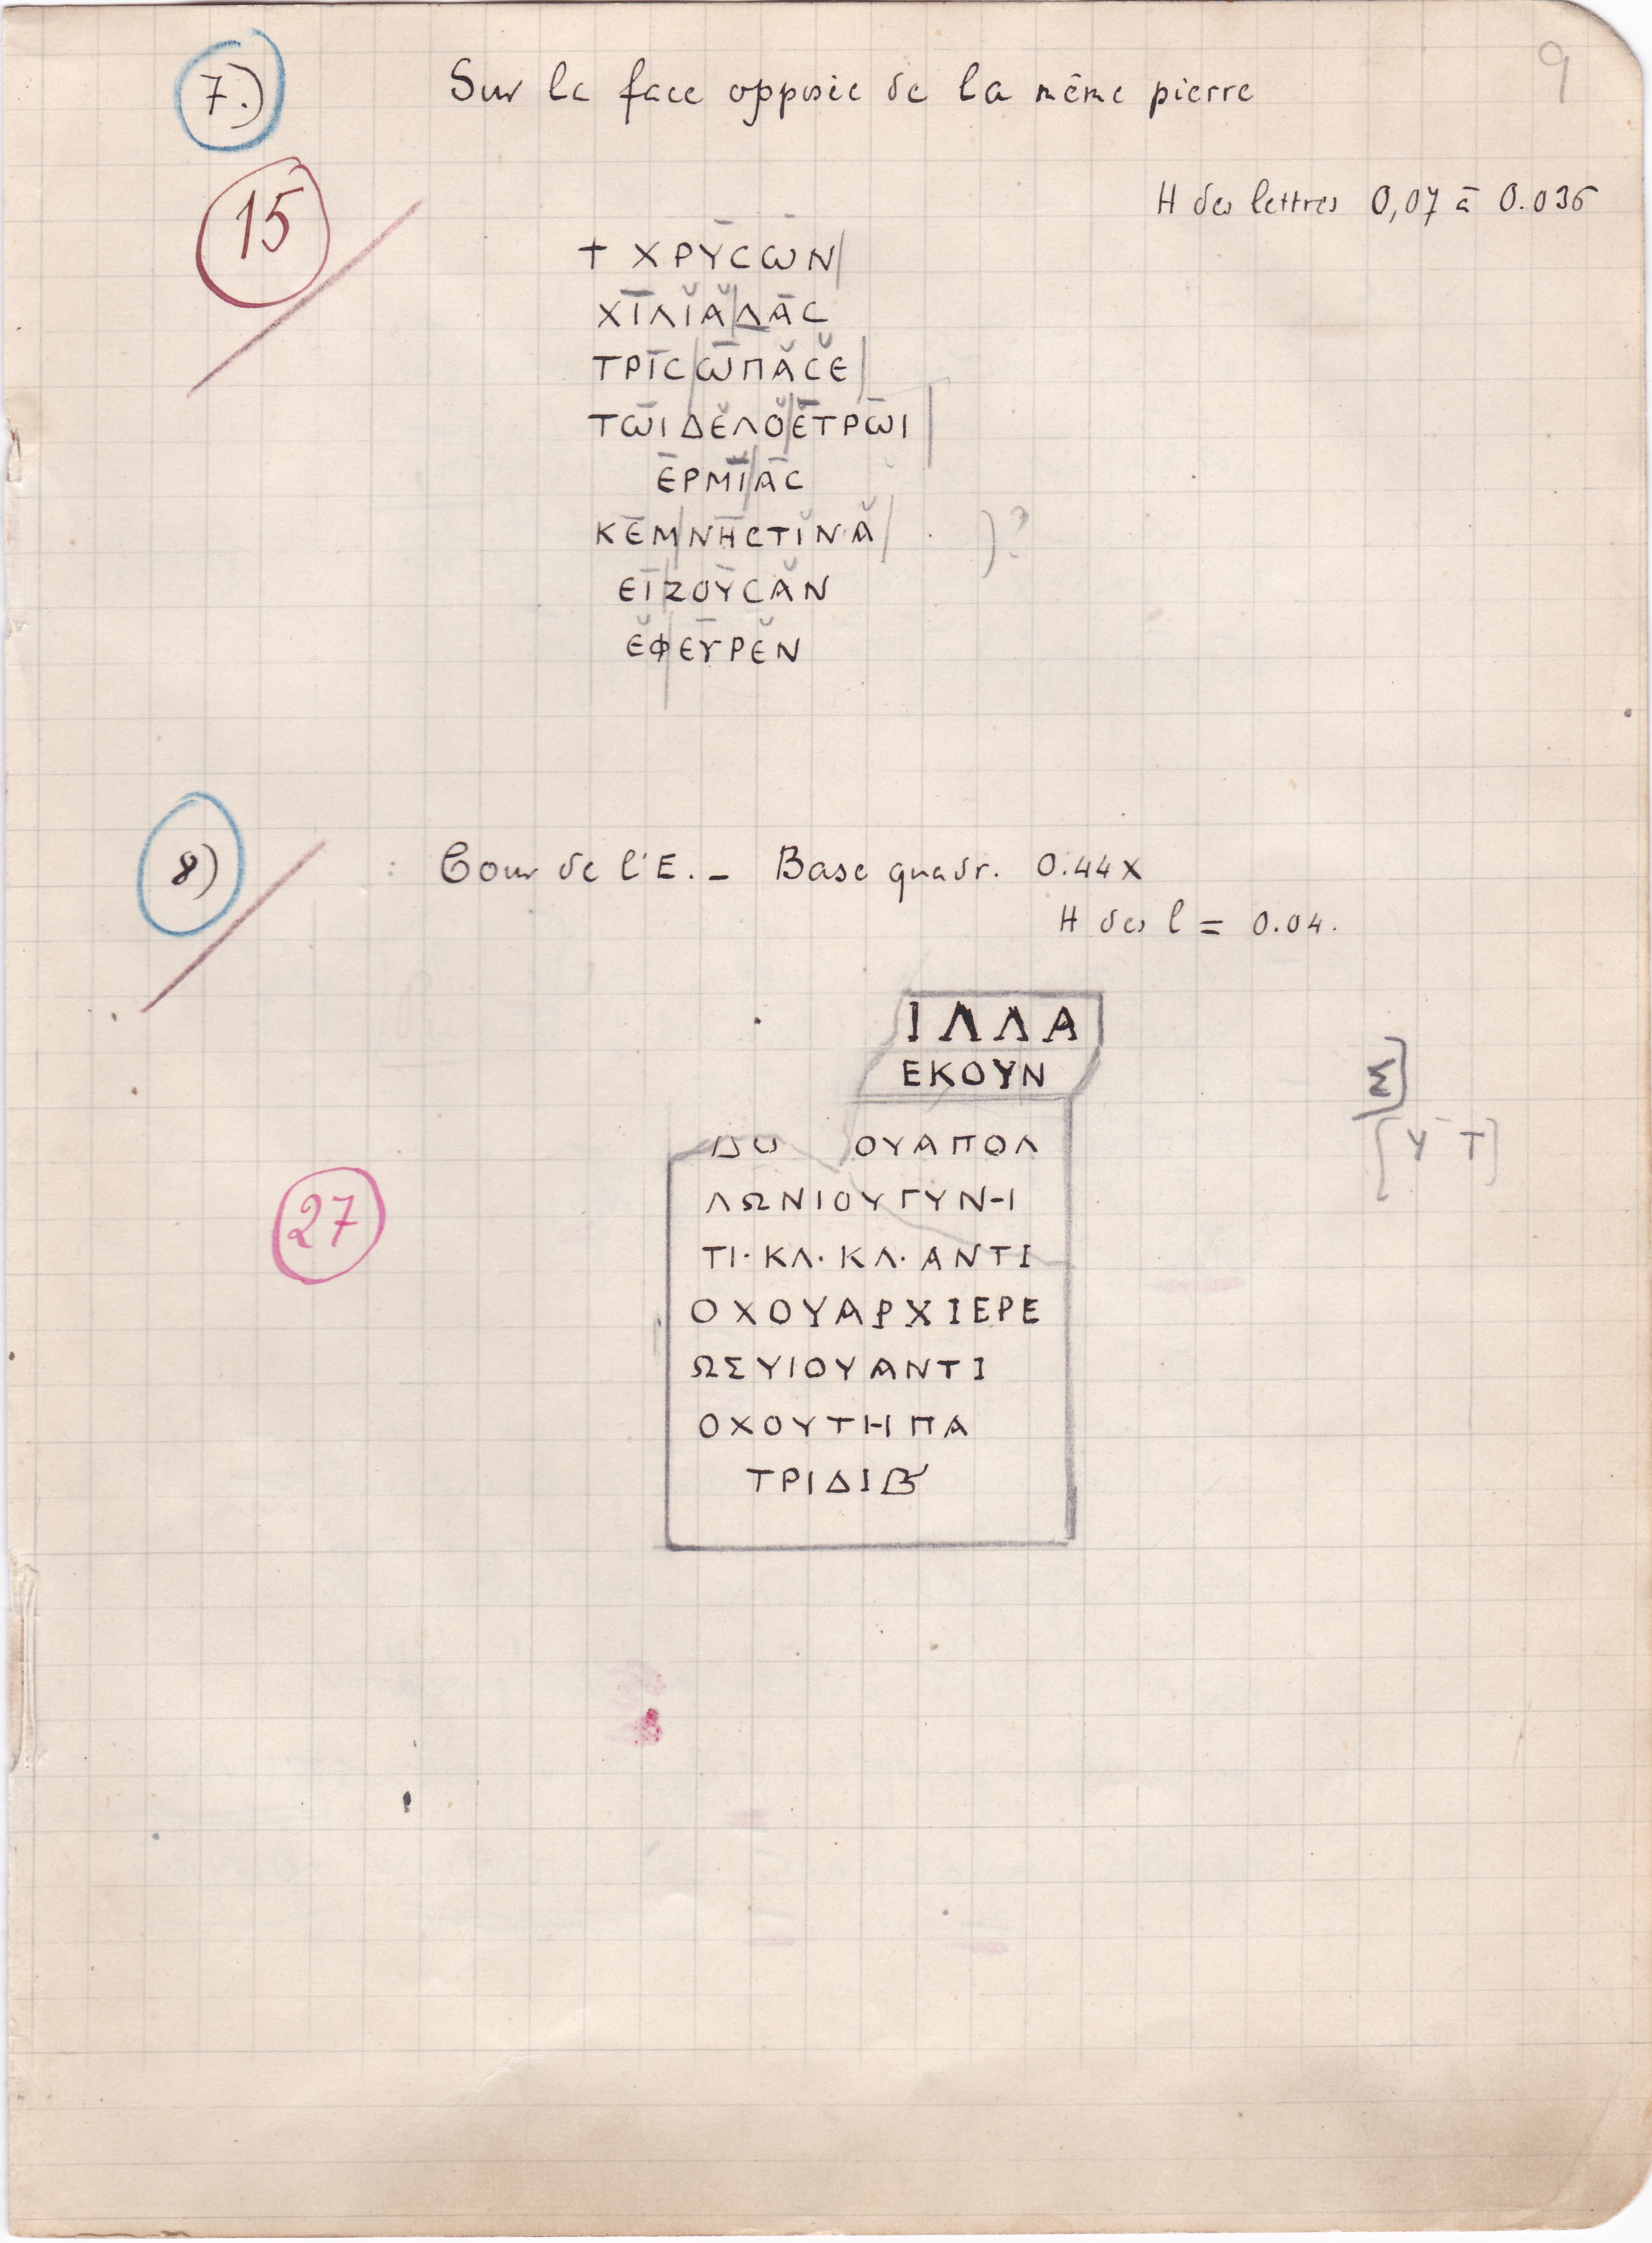 9
7.) Sur la face opposée de la même pierre
15
H des lettres 0,07 à 0.036
+ ΧΡΥCΩΝ
ΧΙΛΙΑΔΑC
ΤΡΙCΩΠΑCΕ
ΤΩΙΔΕΛΟΕΤΡΩΙ
ΕΡΜΙΑC
ΚΕΜΝΗCΤΙΝΑ )?
ΕΙΖΟΥCΑΝ
ΕΦΕΥΡΕΝ
8) Cour de l'E. _ Base quadr. 0.44x
H des l = 0.04.
ΙΛΛΑ
ΕΚΟΥΝ
Σ]
ΟΥΑΠΟΛ
[Υ Τ]
ΛΩΝΙΟΥΓΥΝΗ
27
ΤΙ·ΚΛ·ΚΛ·ΑΝΤΙ
ΟΧΟΥΑΡΧΙΕΡΕ
ΩΣΥΙΟΥΑΝΤΙ
ΟΧΟΥΤΗΠΑ
ΤΡΙΔΙΒ